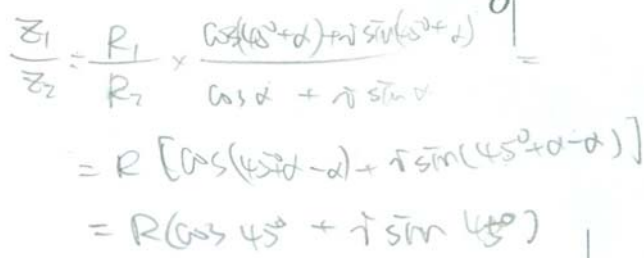 \frac{Z_1}{Z_2} = \frac{R_1}{R_2} × \frac{cos(45°+α)+i sin(45°+α)}{cos α + i sin α} =
= R [cos(45°+α-α) + i sin(45°+α-α)]
= R(cos 45° + i sin 45°)